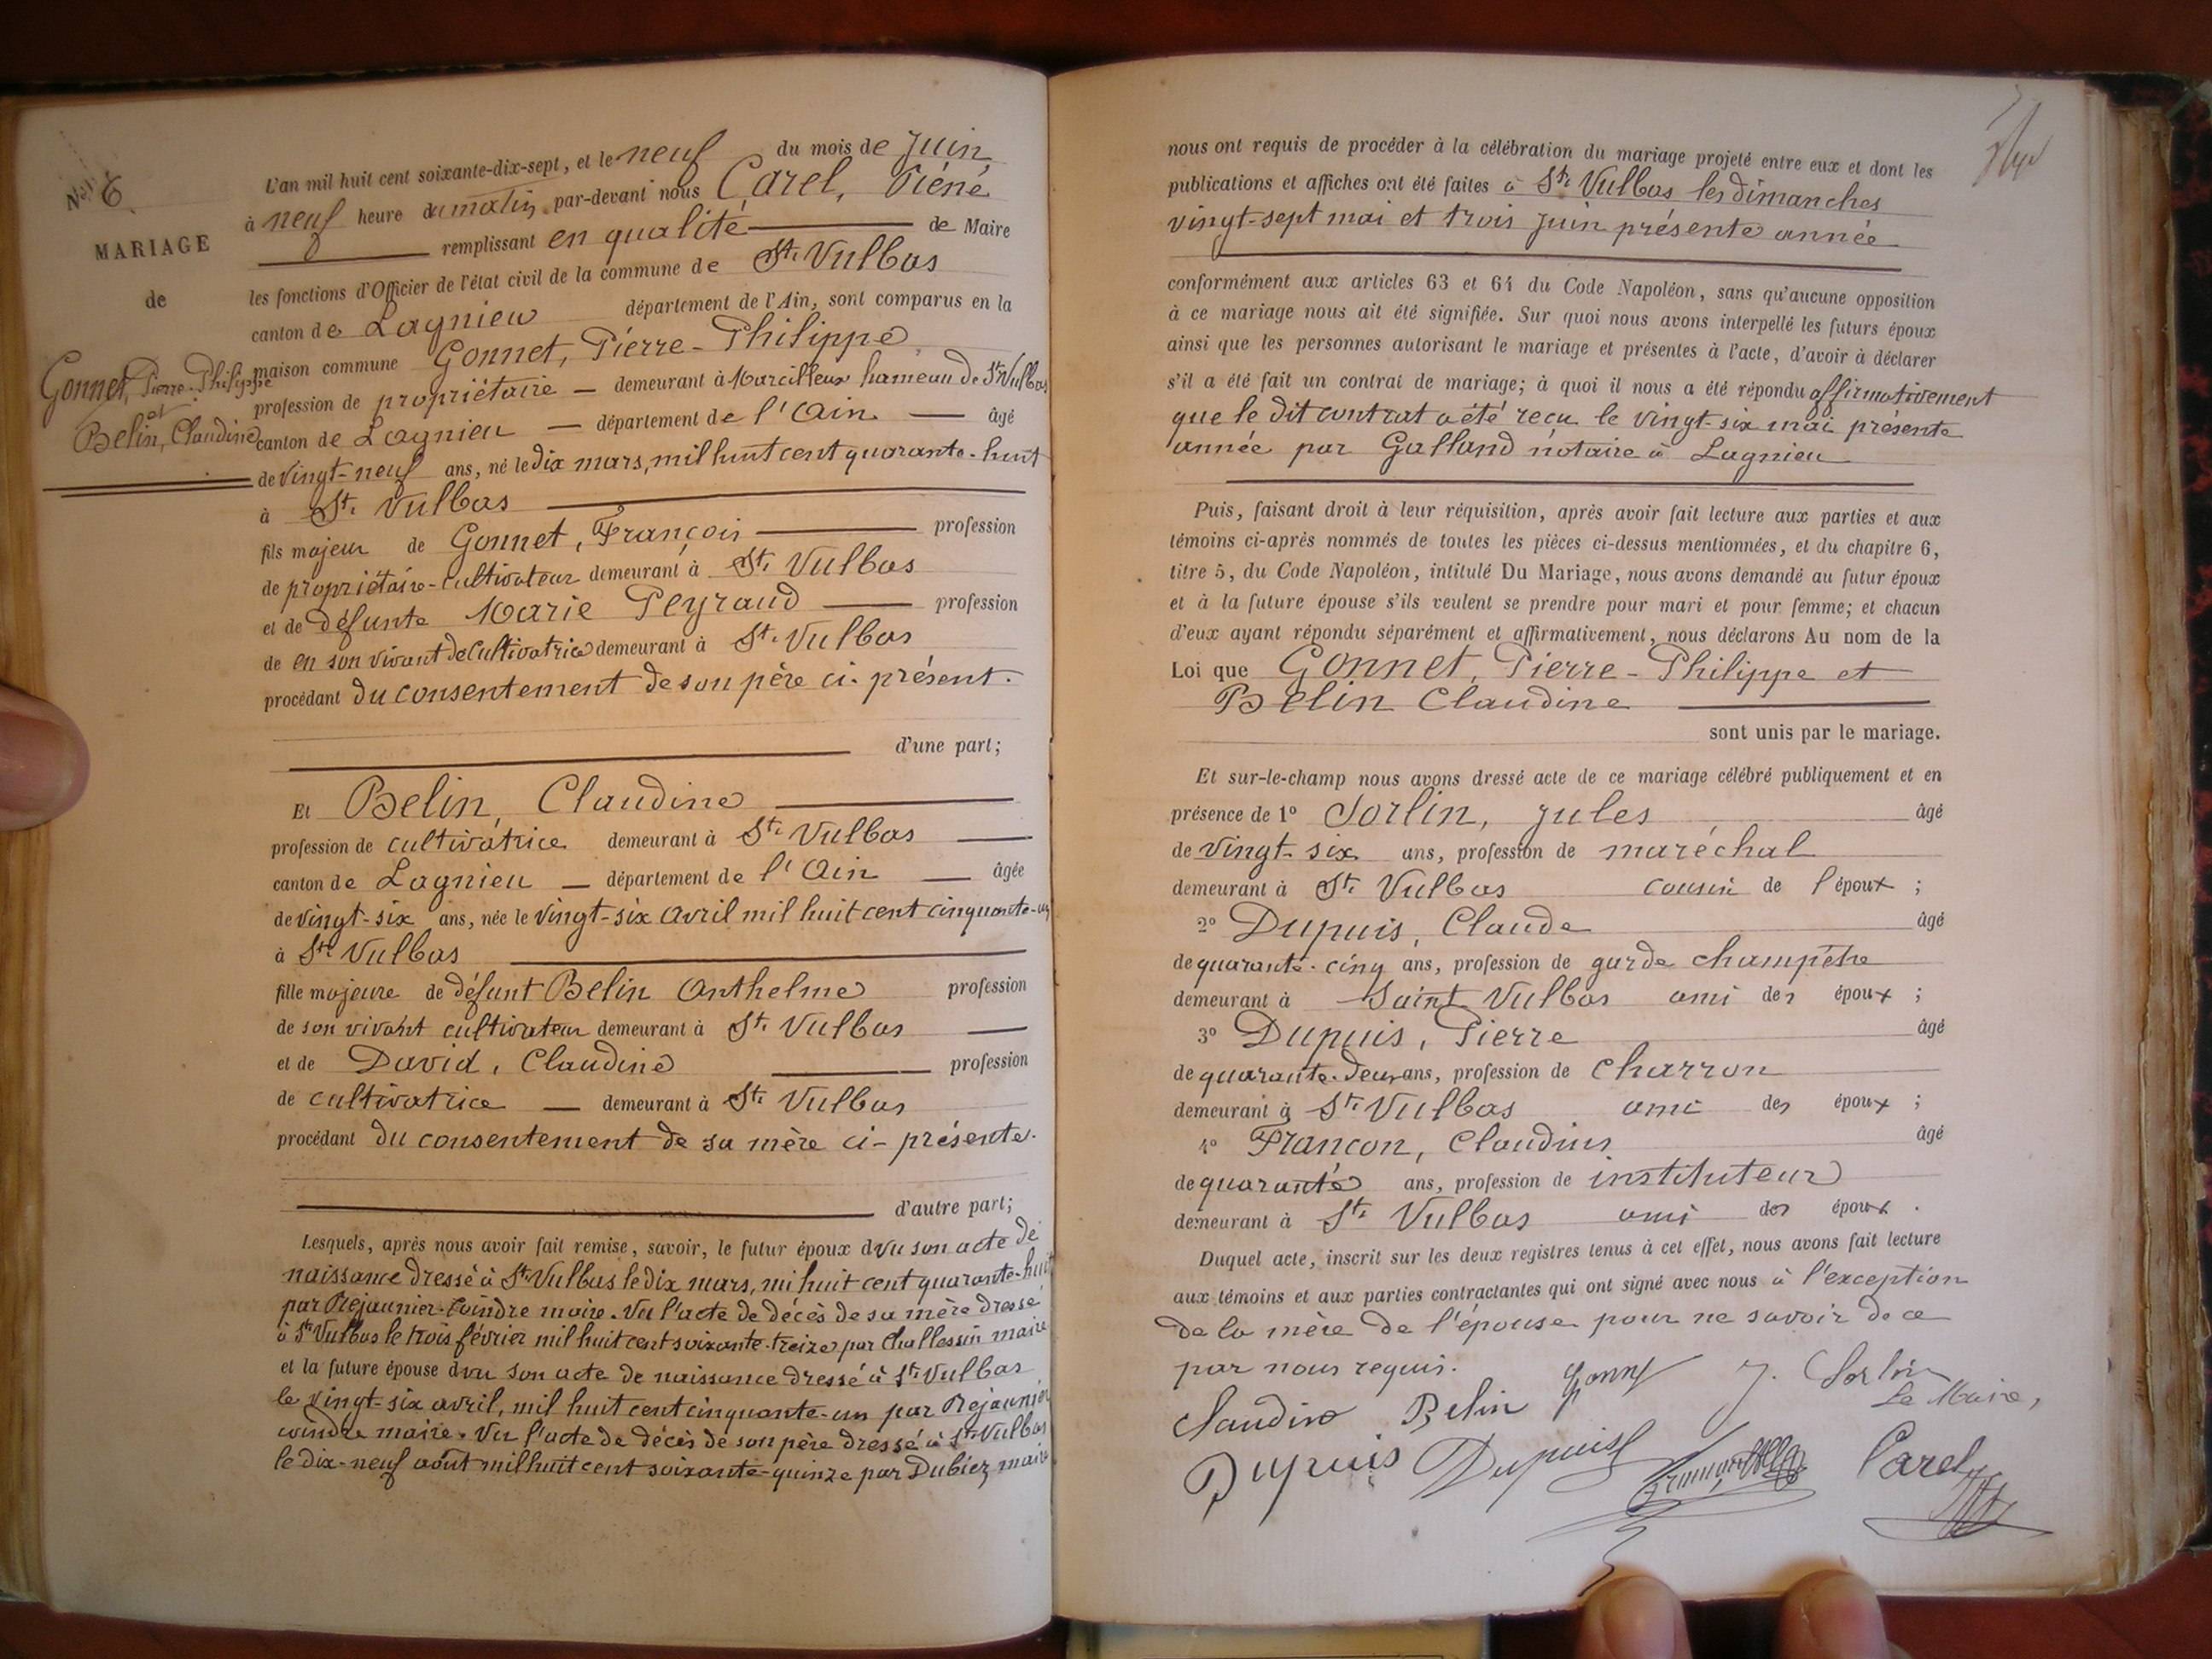 N° 6
MARIAGE
de
Gonnet, Pierre-Philippe
et
Belin, Claudine
L'an mil huit cent soixante-dix-sept, et le neuf du mois de Juin
à neuf heure du matin par-devant nous Carel, Réné
remplissant en qualité de Maire
les fonctions d'Officier de l'état civil de la commune de St. Vulbas
canton de Lagnieu département de l'Ain, sont comparus en la
maison commune Gonnet, Pierre-Philippe
profession de propriétaire — demeurant à Marcilleux hameau de St Vulbas
canton de Lagnieu — département de l'Ain — âgé
de vingt-neuf ans, né le dix mars, mil huit cent quarante-huit
à St. Vulbas
fils majeur de Gonnet, François profession
de propriétaire-cultivateur demeurant à St. Vulbas
et de défunte Marie Peyraud profession
de en son vivant de cultivatrice demeurant à St. Vulbas
procédant du consentement de son père ci-présent.
d'une part;
Et Belin, Claudine
profession de cultivatrice demeurant à St. Vulbas
canton de Lagnieu — département de l'Ain — âgée
de vingt-six ans, née le vingt-six avril mil huit cent cinquante-un
à St. Vulbas
fille majeure de défunt Belin Anthelme profession
de son vivant cultivateur demeurant à St. Vulbas
et de David, Claudine profession
de cultivatrice — demeurant à St. Vulbas
procédant du consentement de sa mère ci-présente.
d'autre part;
Lesquels, après nous avoir fait remise, savoir, le futur époux d vu son acte de
naissance dressé à St. Vulbas le dix mars, mi huit cent quarante-huit
par Rejaunier-Coindre maire. Vu l'acte de décès de sa mère dressé
à St. Vulbas le trois février mil huit cent soixante-treize par Challessin maire
et la future épouse d vu son acte de naissance dressé à St. Vulbas
le vingt-six avril, mil huit cent cinquante-un par Rejaunier
coindre maire. Vu l'acte de décès de son père dressé à St. Vulbas
le dix-neuf août mil huit cent soixante-quinze par Dubiez maire
nous ont requis de procéder à la célébration du mariage projeté entre eux et dont les
publications et affiches ont été faites à St. Vulbas les dimanches
vingt-sept mai et trois Juin présente année
conformément aux articles 63 et 64 du Code Napoléon, sans qu'aucune opposition
à ce mariage nous ait été signifiée. Sur quoi nous avons interpellé les futurs époux
ainsi que les personnes autorisant le mariage et présentes à l'acte, d'avoir à déclarer
s'il a été fait un contrat de mariage; à quoi il nous a été répondu affirmativement
que le dit contrat a été reçu le vingt-six mai présente
année par Galland notaire à Lagnieu
Puis, faisant droit à leur réquisition, après avoir fait lecture aux parties et aux
témoins ci-après nommés de toutes les pièces ci-dessus mentionnées, et du chapitre 6,
titre 5, du Code Napoléon, intitulé Du Mariage, nous avons demandé au futur époux
et à la future épouse s'ils veulent se prendre pour mari et pour femme; et chacun
d'eux ayant répondu séparément et affirmativement, nous déclarons Au nom de la
Loi que Gonnet, Pierre-Philippe et
Belin Claudine
sont unis par le mariage.
Et sur-le-champ nous avons dressé acte de ce mariage célébré publiquement et en
présence de 1° Sorlin, Jules âgé
de vingt-six ans, profession de maréchal
demeurant à St. Vulbas cousin de l'époux ;
2° Dupuis, Claude âgé
de quarante-cinq ans, profession de garde champêtre
demeurant à Saint Vulbas ami des époux ;
3° Dupuis, Pierre âgé
de quarante-deux ans, profession de charron
demeurant à St. Vulbas ami des époux ;
4° Françon, Claudius âgé
de quarante ans, profession de instituteur
demeurant à St. Vulbas ami des époux .
Duquel acte, inscrit sur les deux registres tenus à cet effet, nous avons fait lecture
aux témoins et aux parties contractantes qui ont signé avec nous à l'exception
de la mère de l'épouse pour ne savoir de ce
par nous requis. Gonnet J. Sorlin
Claudine Belin Le Maire,
Dupuis Dupuis Carel